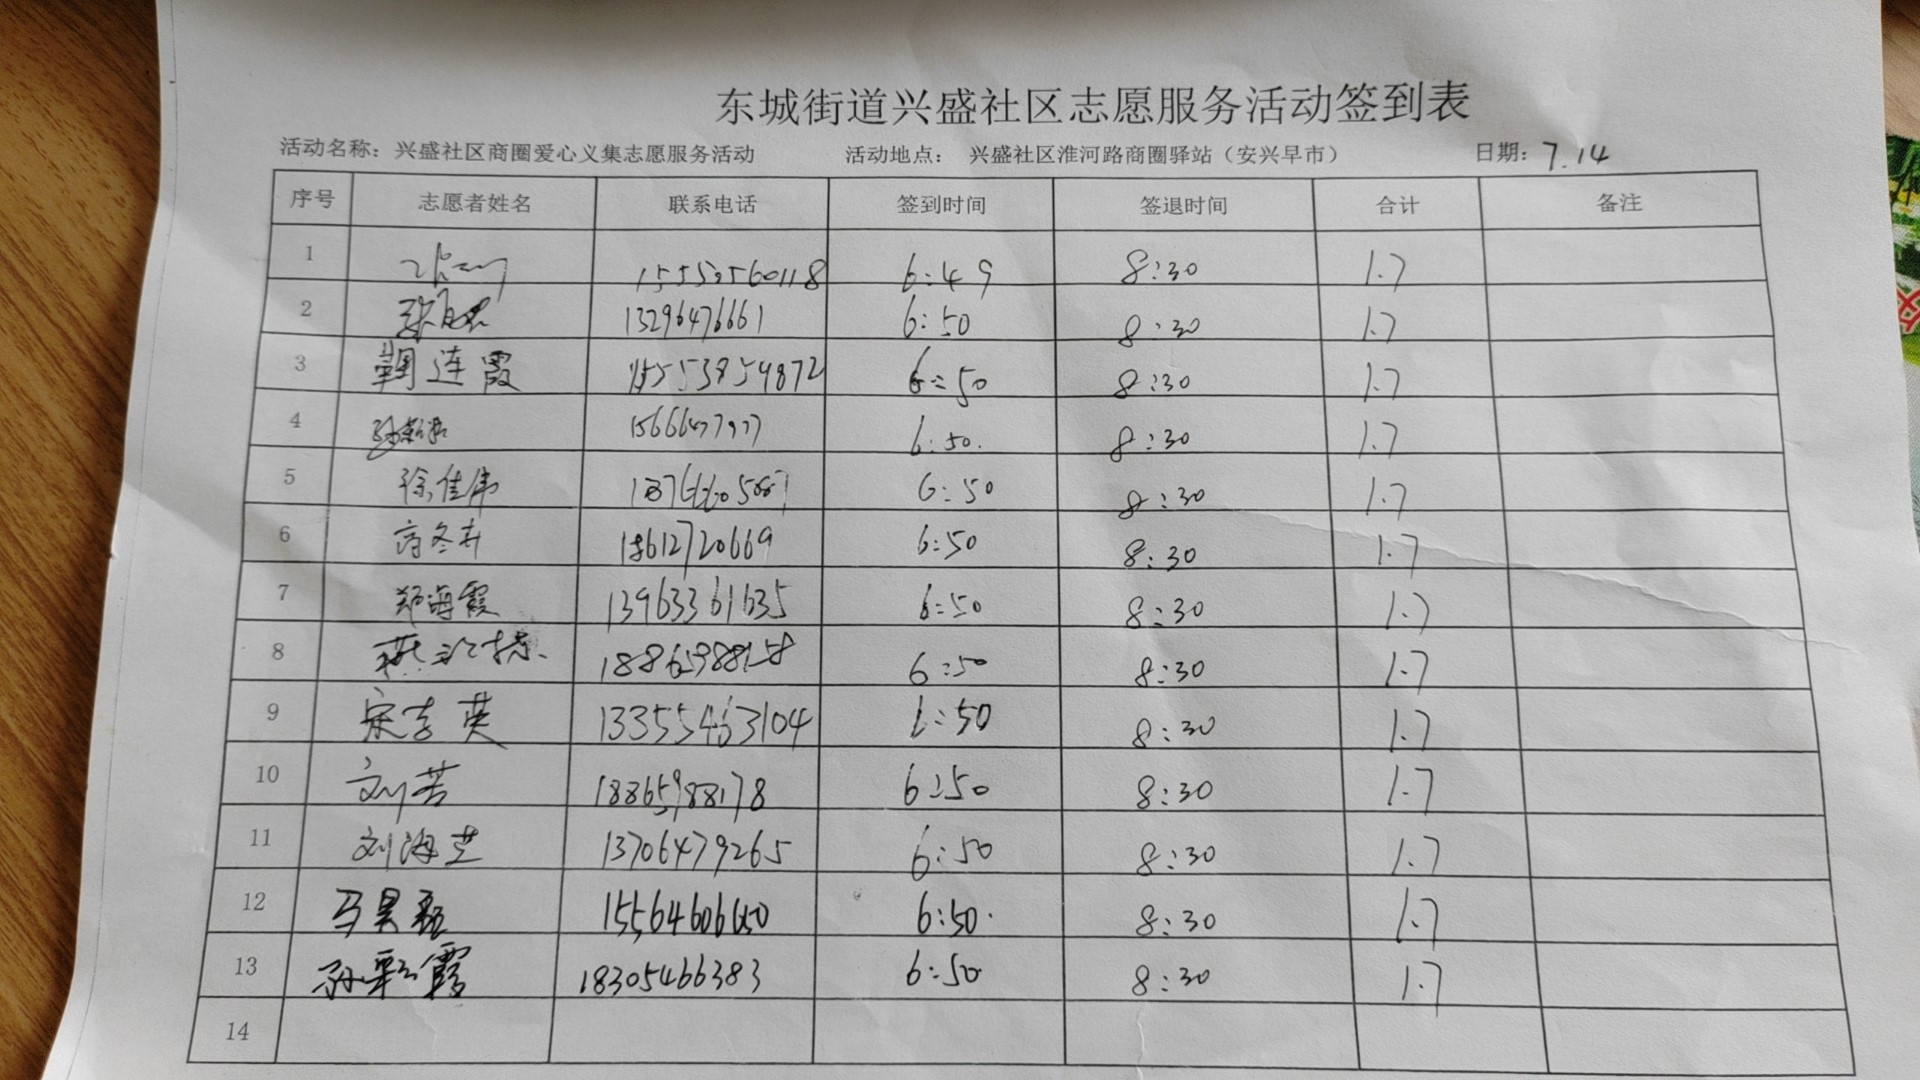 东城街道兴盛社区志愿服务活动签到表
活动名称：兴盛社区商圈爱心义集志愿服务活动 活动地点： 兴盛社区淮河路商圈驿站（安兴早市） 日期：7.14
序号 志愿者姓名 联系电话 签到时间 签退时间 合计 备注
1 6:49 8:30 1.7
2 13296476661 6:50 8:30 1.7
3 鞠连霞 15553859872 6:50 8:30 1.7
4 6:50. 8:30 1.7
5 徐佳伟 6:50 8:30 1.7
6 18612720669 6:50 8:30 1.7
7 郑海霞 13963361635 6:50 8:30 1.7
8 18865988158 6:50 8:30 1.7
9 宋志英 13355463104 6:50 8:30 1.7
10 刘芳 18865988178 6:50 8:30 1.7
11 刘海芝 13706479265 6:50 8:30 1.7
12 15564606660 6:50. 8:30 1.7
13 孙彩霞 18305466383 6:50 8:30 1.7
14